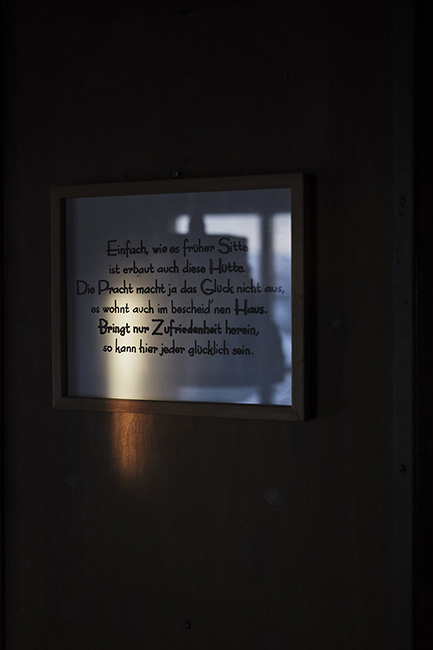 Einfach, wie es früher Sitte
ist erbaut auch diese Hütte.
Die Pracht macht ja das Glück nicht aus,
es wohnt auch im bescheid'nen Haus.
Bringt nur Zufriedenheit herein,
so kann hier jeder glücklich sein.